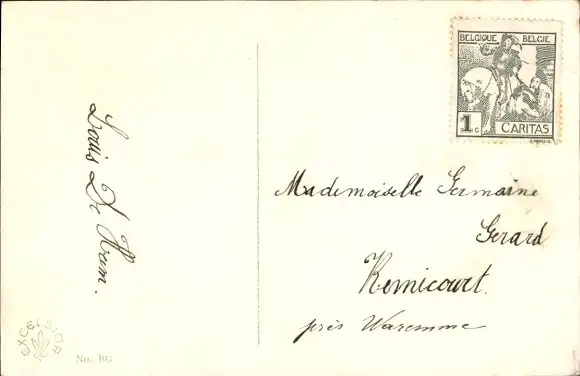 BELGIQUE BELGIE
1c
CARITAS
Louis De Ham.
Mademoiselle Germaine
Gerard
Remicourt.
près Waremme
EXCELSIOR
No. 105